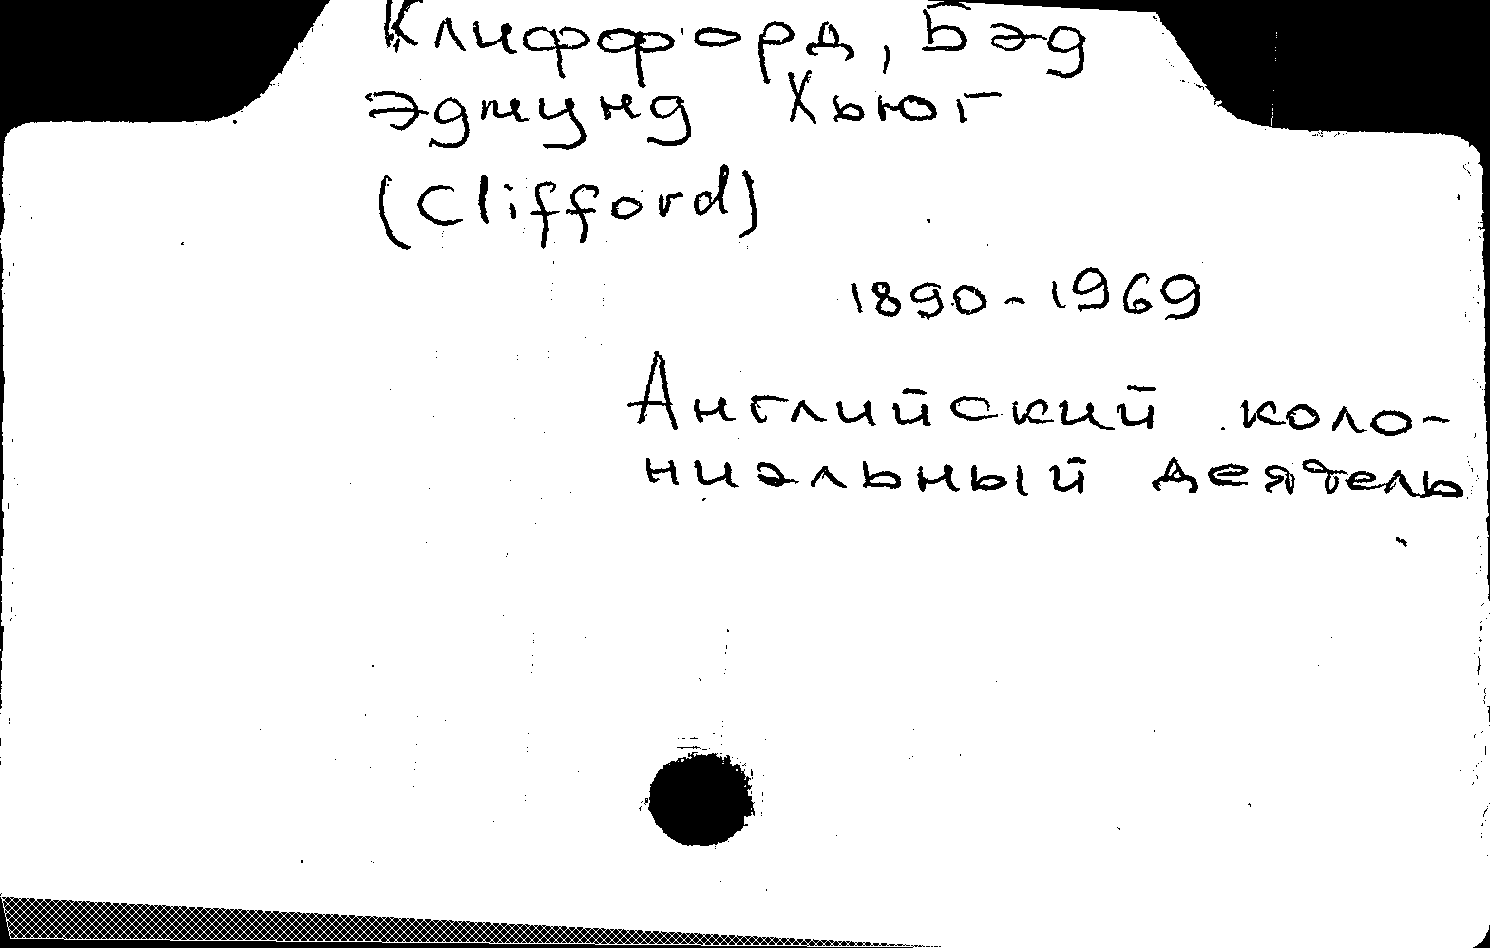 Клиффорд, Бэд
Эдмунд Хьюг
(Clifford)
1890-1969
Английский коло-
ниальный деятель